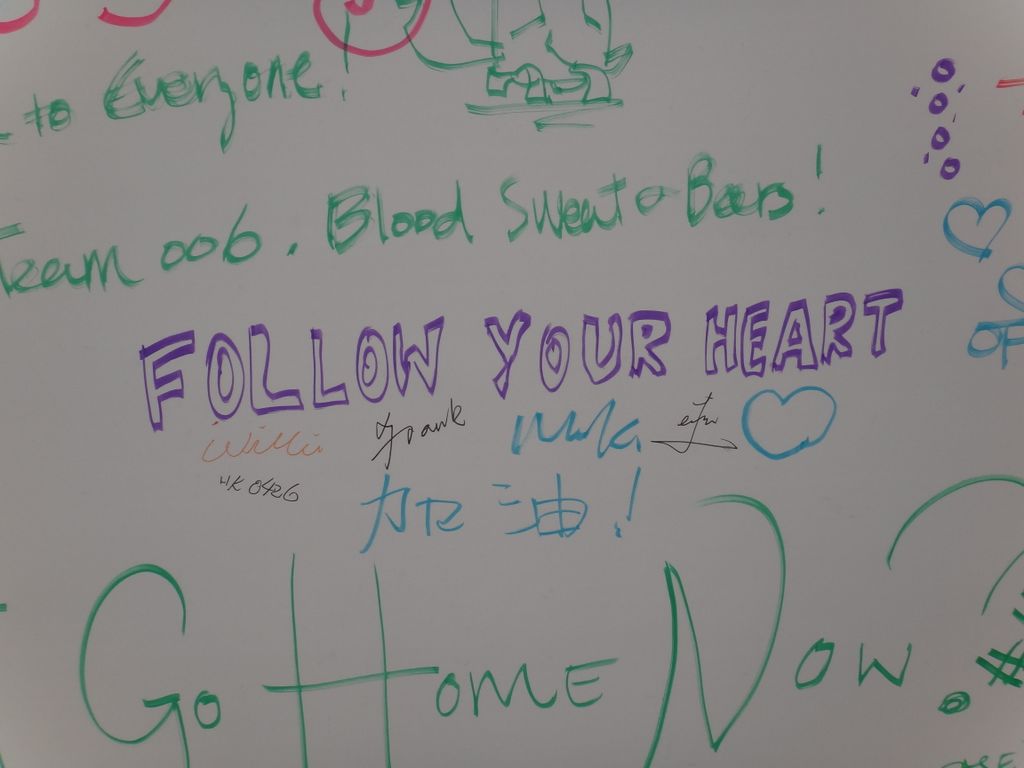 to Everyone!
Team 006. Blood Sweat & Beers!
FOLLOW YOUR HEART
Willi Frank
HK0426
加油!
Go HOME Now?
#